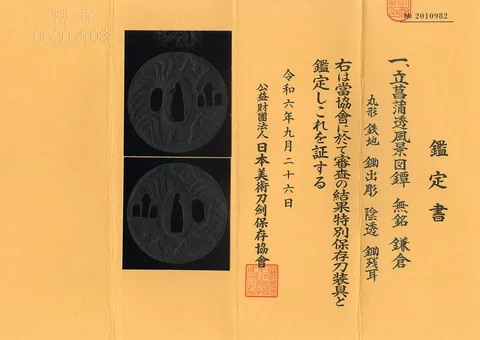 № 2010982
鑑定書
一、立菖蒲透風景図鐔 無銘 鎌倉
丸形 鉄地 鋤出彫 陰透 鋤残耳
右は當協會に於て審査の結果特別保存刀装具と
鑑定しこれを証する
令和六年九月二十六日
公益財團法人 日本美術刀劍保存協會